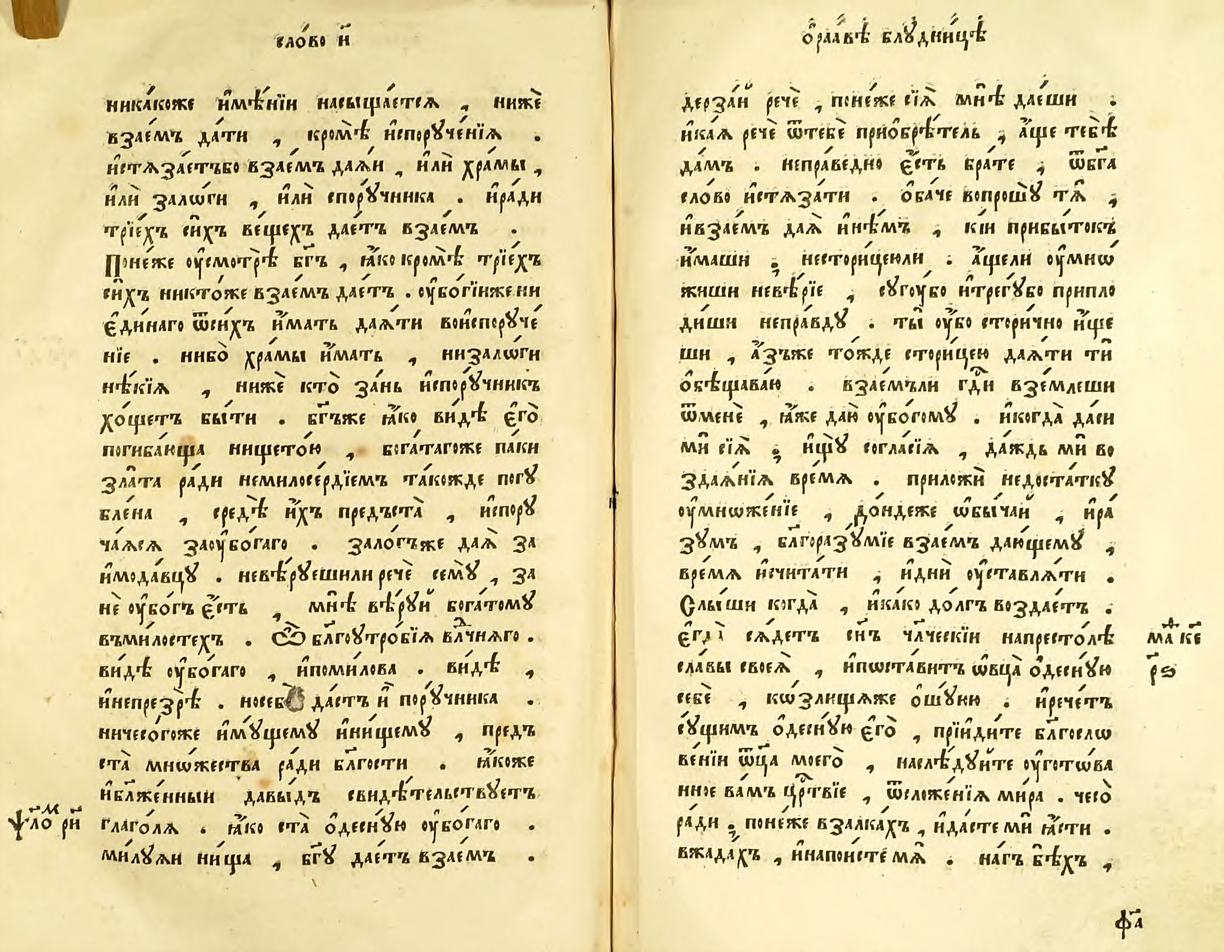 сло́во и҃
ника́коже и҆мѣ́нїи насыща́етсѧ , нижѐ
взае́мъ да́ти , кро́мѣ и҆спорꙋче́нїѧ .
и҆стѧза́етъбо взае́мъ даѧ́и , и҆лѝ хра́мы ,
и҆лѝ зало́ги , и҆лѝ спорꙋ́чника . и҆ра́ди
трїе́хъ си́хъ ве́щехъ дае́тъ взае́мъ .
Поне́же оу҆смотрѣ̀ бг҃ъ , ꙗ҆́ко кро́мѣ трїе́хъ
си́хъ никто́же взае́мъ дае́тъ . оу҆бо́гїиже ни
є҆ди́наго ѿси́хъ и҆́мать даѧ́ти вои҆спорꙋче́
нїе . нибо̀ хра́мы и҆́мать , низало́ги
нѣ́кїѧ , нижѐ кто̀ за́нь и҆спорꙋ́чникъ
хо́щетъ бы́ти . бг҃ъже ꙗ҆́ко ви́дѣ є҆го̀
погиба́юща нището́ю , бога́тагоже па́ки
зла́та ра́ди немилосе́рдїемъ та́кожде погꙋ́
бле́на , средѣ̀ и҆́хъ предъста̀ , и҆спорꙋ
ча́ѧсѧ заоу҆бо́гаго . зало́гъже даѧ̀ за
и҆мода́вцꙋ . невѣ́рꙋешили речѐ семꙋ̀ , за
нѐ оу҆бо́гъ є҆́сть , мнѣ̀ вѣ́рꙋй бога́томꙋ
въми́лостехъ . Ѽ бл҃гоꙋтро́бїѧ влⷣчнѧго .
ви́дѣ оу҆бо́гаго , и҆поми́лова . ви́дѣ ,
и҆непрезрѣ̀ . носебѐ да́стъ и҆̀ порꙋ́чника .
ничесо́гоже и҆мꙋ́щемꙋ и҆ни́щемꙋ , предъ
ста̀ мно́жества ра́ди бл҃гости . ꙗ҆́коже
и҆бл҃же́нный давы́дъ свидѣ́тельствꙋетъ
глаго́лѧ . ꙗ҆́ко ста̀ ѻ҆деснꙋ́ю оу҆бо́гаго .
ми́лꙋѧи ни́ща , бг҃ꙋ дае́тъ взае́мъ .
ѱало́мъ ри҃
ѡ҆раа́вѣ блꙋдни́цѣ
дерза́й речѐ , поне́же сїѧ̀ мнѣ̀ дае́ши .
и҆ка́ѧ речѐ ѿтебѐ приѻбрѣ́тель , а҆́ще тебѣ̀
да́мъ . непра́ведно є҆́сть бра́те , ѿбг҃а
сло́во и҆стѧза́ти . ѻ҆ба́че вопрошꙋ̀ тѧ̀ ,
и҆взае́мъ даѧ̀ и҆нѣ́мъ , кі́и прибы́токъ
и҆́маши ; несторице́юли . а҆́щели оу҆мно́
жиши невѣ́рїе , сꙋгꙋ́бо и҆трегꙋ́бо припло
ди́ши непра́вдꙋ . ты̀ оу҆́бо стори́чно и҆́ще
ши , а҆́зъже то́жде стори́цею даѧ́ти тѝ
ѻ҆бѣщава́ю . взае́мъли гдⷭ҇и взе́млеши
ѿменѐ , ꙗ҆́же даю̀ оу҆бо́гомꙋ . и҆когда̀ да́си
мѝ сїѧ̀ ; и҆щꙋ̀ согла́сїѧ , да́ждь мѝ во
здаѧ́нїѧ вре́мѧ . приложѝ недоста́ткꙋ
оу҆множе́нїе , до́ндеже ѡ҆бы́чай , и҆ра́
зꙋмъ , бл҃горазꙋ́мїе взае́мъ даю́щемꙋ ,
вре́мѧ и҆счита́ти , и҆дни̑ оу҆ставлѧ́ти .
Слы́ши когда̀ , и҆ка́ко до́лгъ воздае́тъ .
є҆гда̀ сѧ́детъ сн҃ъ чл҃ческїи напресто́лѣ
сла́вы своеѧ̀ , и҆поста́витъ ѻ҆вца̀ ѻ҆деснꙋ́ю
себѐ , ко́злищѧже ѻ҆шꙋ́юю . и҆рече́тъ
сꙋ́щимъ ѻ҆деснꙋ́ю є҆го̀ , прїиди́те бл҃госло
ве́нїи ѻ҆ц҃а моего̀ , наслѣ́дꙋйте оу҆гото́ва
нное ва́мъ црⷭ҇твїе , ѿсложе́нїѧ ми́ра . чесо̀
ра́ди ; поне́же взалка́хъ , и҆да́сте мѝ ꙗ҆́сти .
вжада́хъ , и҆напои́сте мѧ̀ . на́гъ бѣ́хъ ,
маⷴ҇ ке҃
рѕ
ф҃а